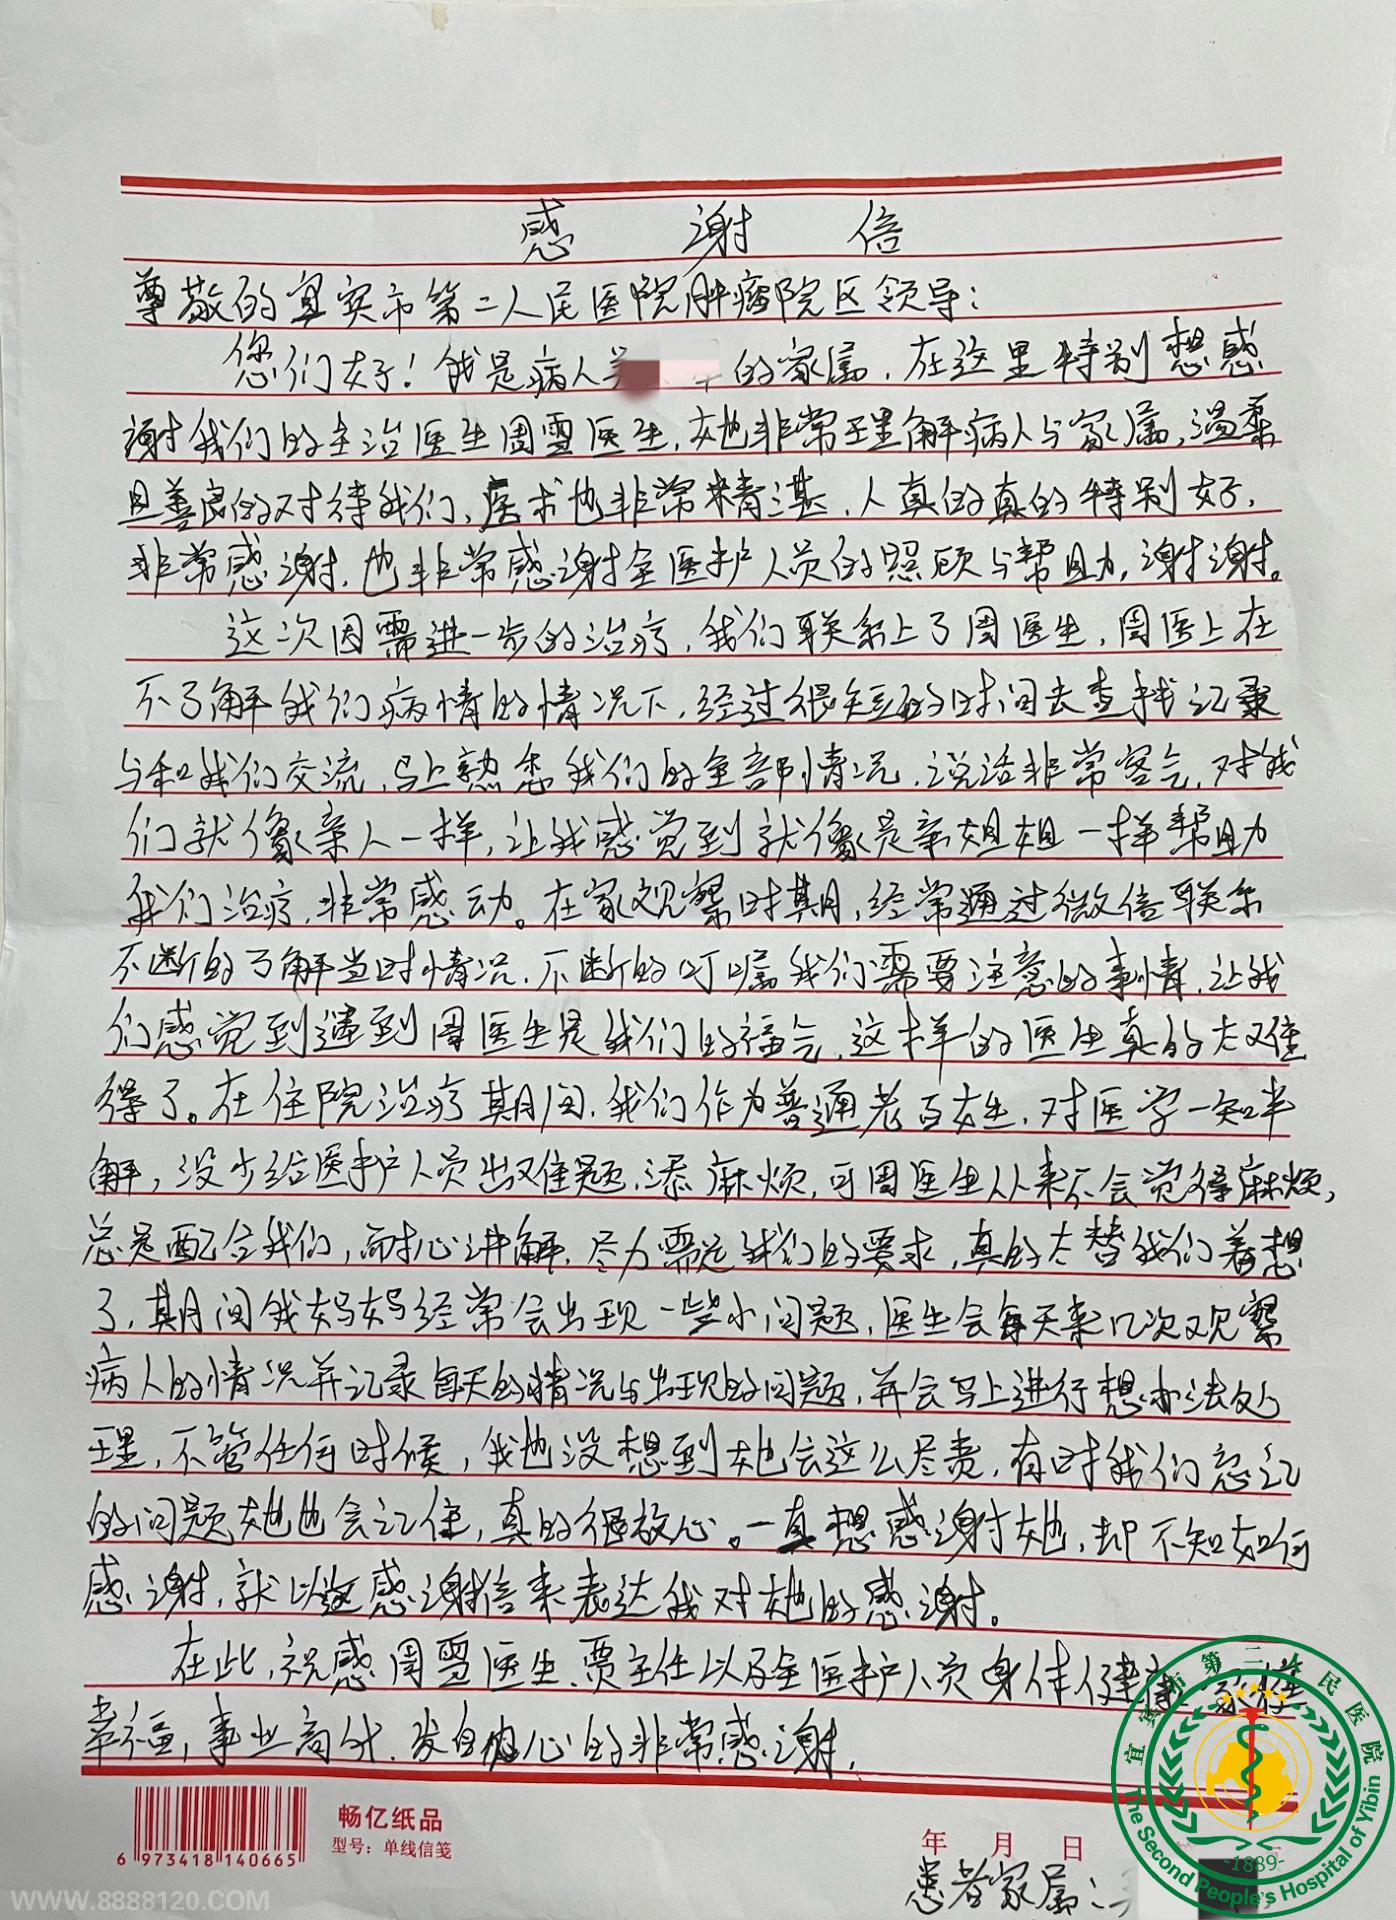 感谢信
尊敬的宜宾市第二人民医院肿瘤院区领导：
您们好！我是病人 的家属，在这里特别想感
谢我们的主治医生周雪医生，她非常理解病人与家属，温柔
且善良的对待我们，医术也非常精湛，人真的真的特别好，
非常感谢，也非常感谢全医护人员的照顾与帮助，谢谢。
这次因需进一步的治疗，我们联系上了周医生，周医生在
不了解我们病情的情况下，经过很短的时间去查找记录
与和我们交流，马上熟悉我们的全部情况，说话非常客气，对我
们就像亲人一样，让我感觉到就像是亲姐姐一样帮助
我们治疗，非常感动。在家观察时期，经常通过微信联系
不断的了解当时情况，不断的叮嘱我们需要注意的事情，让我
们感觉到遇到周医生是我们的福气，这样的医生真的太难
得了。在住院治疗期间，我们作为普通老百姓，对医学一知半
解，没少给医护人员出难题，添麻烦，可周医生从来不会觉得麻烦，
总是配合我们，耐心讲解，尽力满足我们的要求，真的太替我们着想
了，期间我妈妈经常会出现一些小问题，医生会每天来几次观察
病人的情况并记录每天的情况与出现的问题，并会马上进行想办法处
理，不管任何时候，我也没想到她会这么尽责，有时我们忘记
的问题她也会记住，真的很放心。一直想感谢她，却不知如何
感谢，就以这感谢信来表达我对她的感谢。
在此，祝感周雪医生、贾主任以及全医护人员身体健康 家庭
幸福，事业高升，发自内心的非常感谢，
6 973418 140665
畅亿纸品
型号：单线信笺
年 月 日
患者家属：
WWW.8888120.COM
宜宾市第二人民医院
-1889-
The Second People's Hospital of Yibin